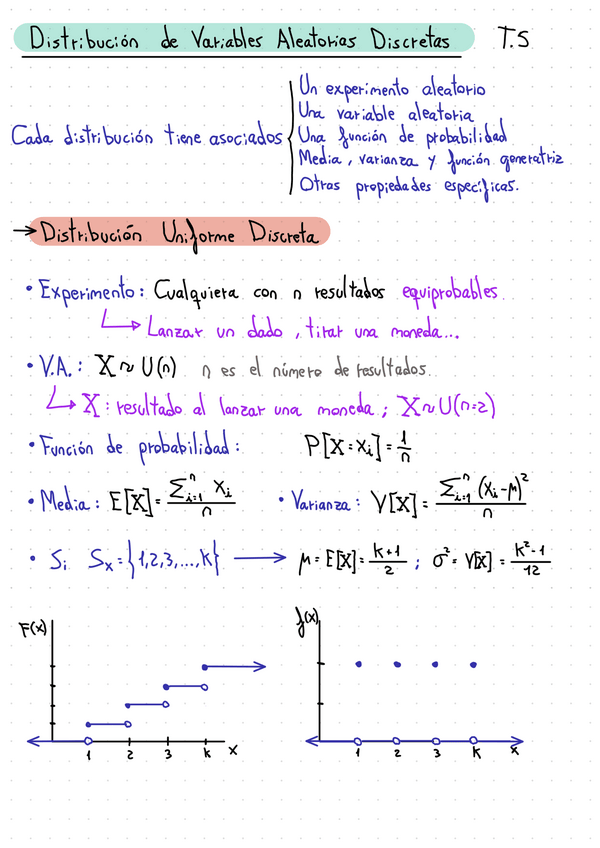 Distribución de Variables Aleatorias Discretas T.5
Cada distribución tiene asociados
Un experimento aleatorio
Una variable aleatoria
Una función de probabilidad
Media, varianza y función generatriz
Otras propiedades específicas.
→ Distribución Uniforme Discreta
• Experimento: Cualquiera con n resultados equiprobables.
↳ Lanzar un dado, tirar una moneda...
• V.A.: X ~ U(n) n es el número de resultados.
↳ X: resultado al lanzar una moneda; X ~ U(n=2)
• Función de probabilidad: P[X=xᵢ] = 1/n
• Media: E[X] = Σⁿᵢ₌₁ xᵢ / n • Varianza: V[X] = Σⁿᵢ₌₁ (xᵢ-μ)² / n
• Si Sₓ = {1,2,3,...,k} → μ = E[X] = k+1/2 ; σ² = V[X] = k²-1/12
F(x) f(x)
1 2 3 k x 1 2 3 k x